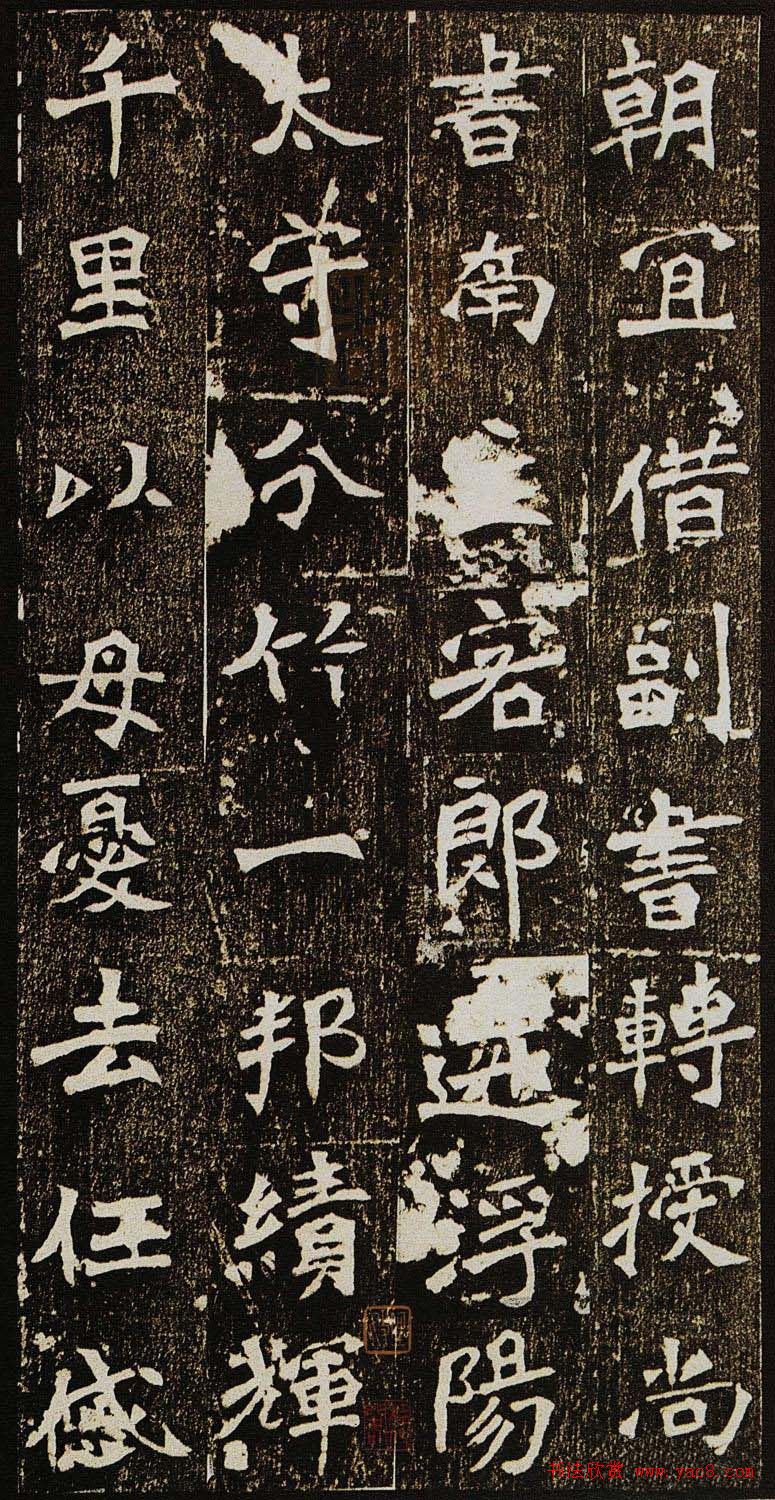 朝宜借副書轉授尚
書南主客郎遷浮陽
太守分竹一邦績輝
千里以母憂去任
书法欣赏 www.yac8.com